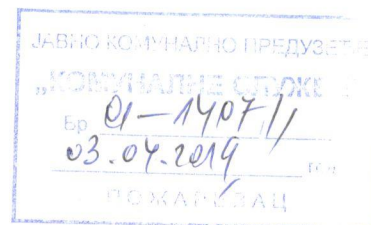 ЈАВНО КОМУНАЛНО ПРЕДУЗЕЋЕ
„КОМУНАЛНЕ СЛУЖБЕ
Бр 01-1407/1
03.04.2019 год
ПОЖАРЕВАЦ